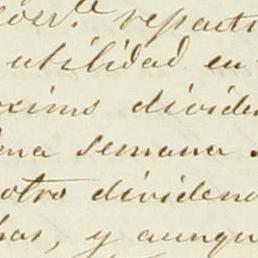 reparti
utilidad en
oximo divide
ma semana
otro dividend
has, y aunqu